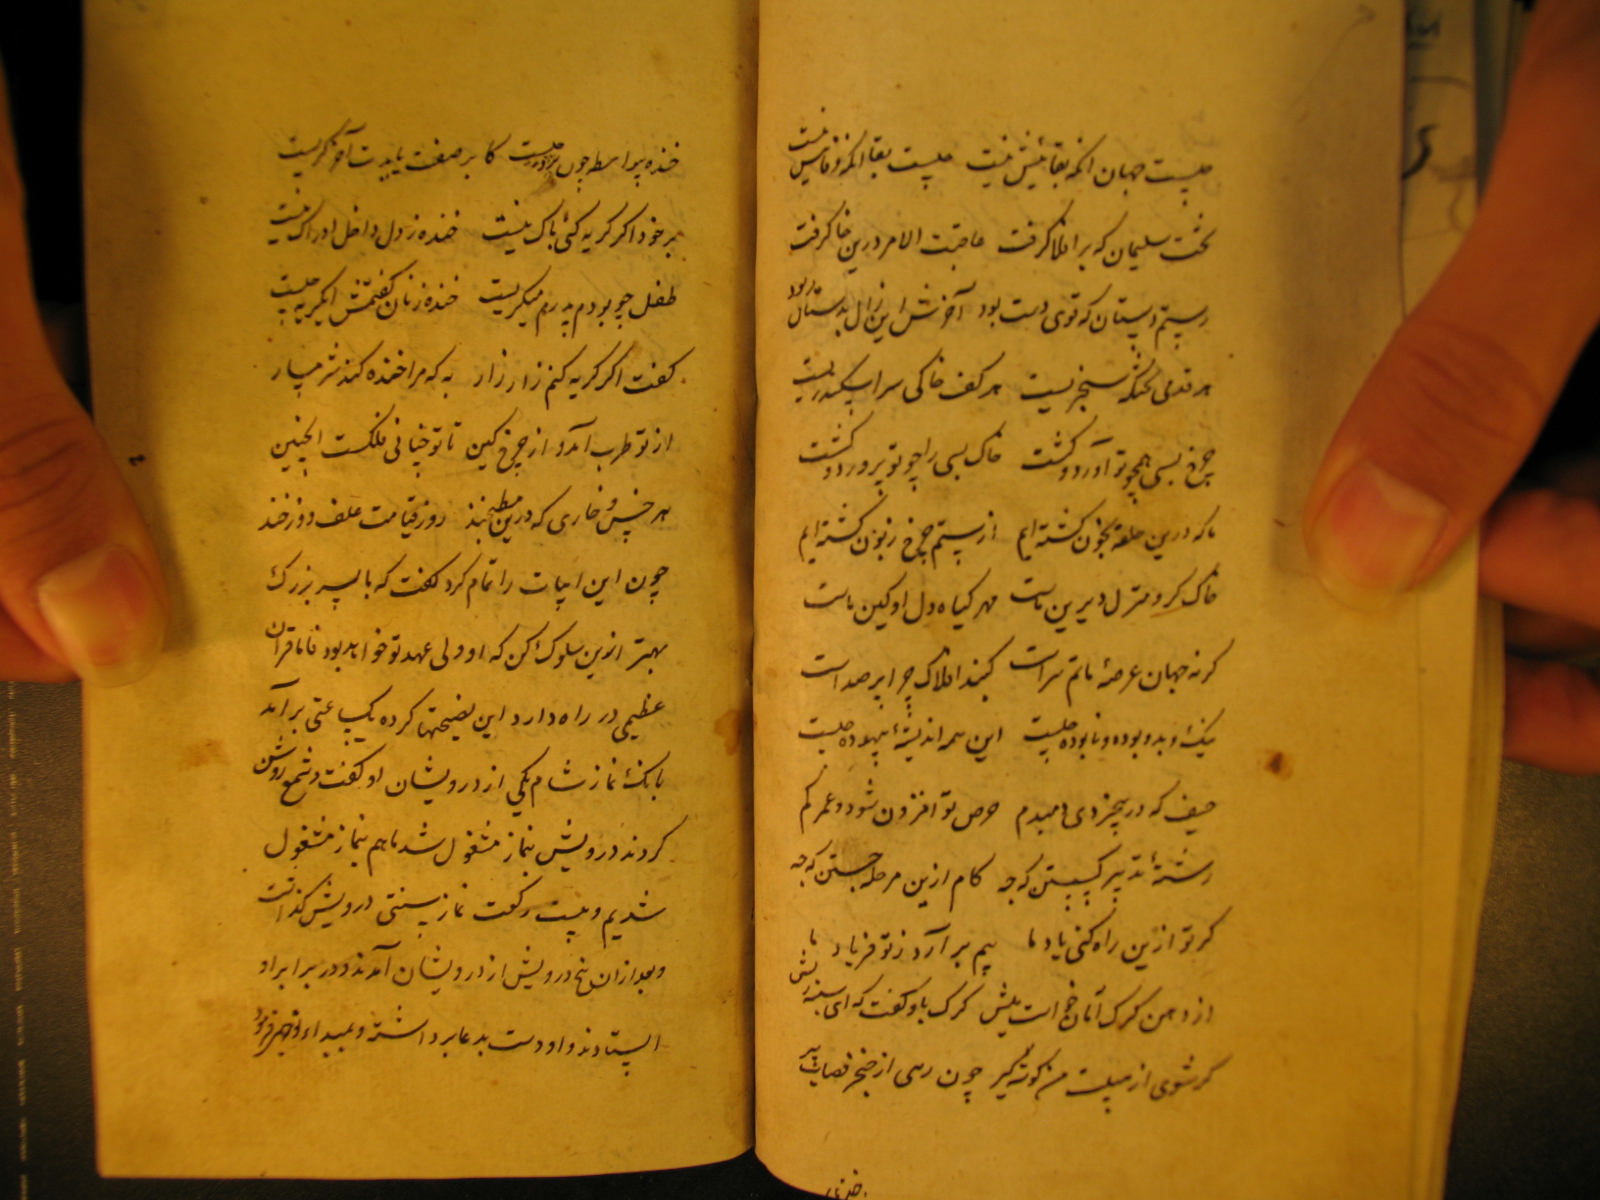 چیست جهان انکه بقائیش نیست چیست بقا انکه فنائیش نیست
تخت سلیمان که بر افلاک گرفت عاقبت الامر درین خاک گرفت
رستم دستان که قوی دست بود آخرش این زال بدستان ربود
هر قدمی تختکه سنجریست هر کف خاکی سر اسکندریست
چرخ بسی همچو تو آورد و کشت خاک بسی را چو تو پرورد و کشت
ما که درین حلقه بخون کشته ایم از ستم چرخ زبون کشته ایم
خاک کرو منزل دیرین ماست مهر کیاه دل او کین ماست
کرنه جهان عرصهٔ ماتم سراست کنبد افلاک چرا پر صداست
نیک و بد و بوده و نابوده چیست این همه اندیشهٔ بیهوده چیست
حیف که در بیخردی دمبدم حرص تو افزون شود و عمر کم
رشتهٔ تدبیر کسستن که چه کام ازین مرحله جستن که چه
کر تو ازین راه کنی یاد ما بیم بر آرد ز تو فریاد ما
از دهن کرک امان خواست میش کرک باو کفت که ای سینه ریش
کر شوی از سبلت من کوشه کیر چون رهی از خنجر قصاب پیر
خنده
خنده بیواسطه چون درد چیست کا بر صفت بایدت آخر کریست
بر خود اکر کریه کنی باک نیست خنده ز دل داخل ادراک نیست
طفل چو بودم پدرم میکریست خنده زنان کفتمش این کریه چیست
کفت اکر کریه کنم زار زار به که مرا خنده کند شرمسار
از تو طرب آمد و از چرخ کین تا تو چنانی فلکست اینچنین
هر خس و خاری که درین مطبخند روز قیامت علف دوزخند
چون این ابیات را تمام کرد کفت که با پسر بزرک
بهتر ازین سلوک کن که او ولی عهد تو خواهد بود فاما قران
عظیمی در راه دارد این نصیحتها کرده یک ساعتی بر آمد
بانک نماز شام یکی از درویشان او کفت و شمع روشن
کردند درویش بنماز مشغول شد ما هم بنماز مشغول
شدیم و بیست رکعت نماز سنتی درویش کذاشت
و بعد از ان پنج درویش از درویشان آمدند و در برابر او
ایستادند و او دست بدعا برداشته و